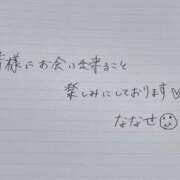 皆様にお会い出来ること
楽しみにしております♡
ななせ☺